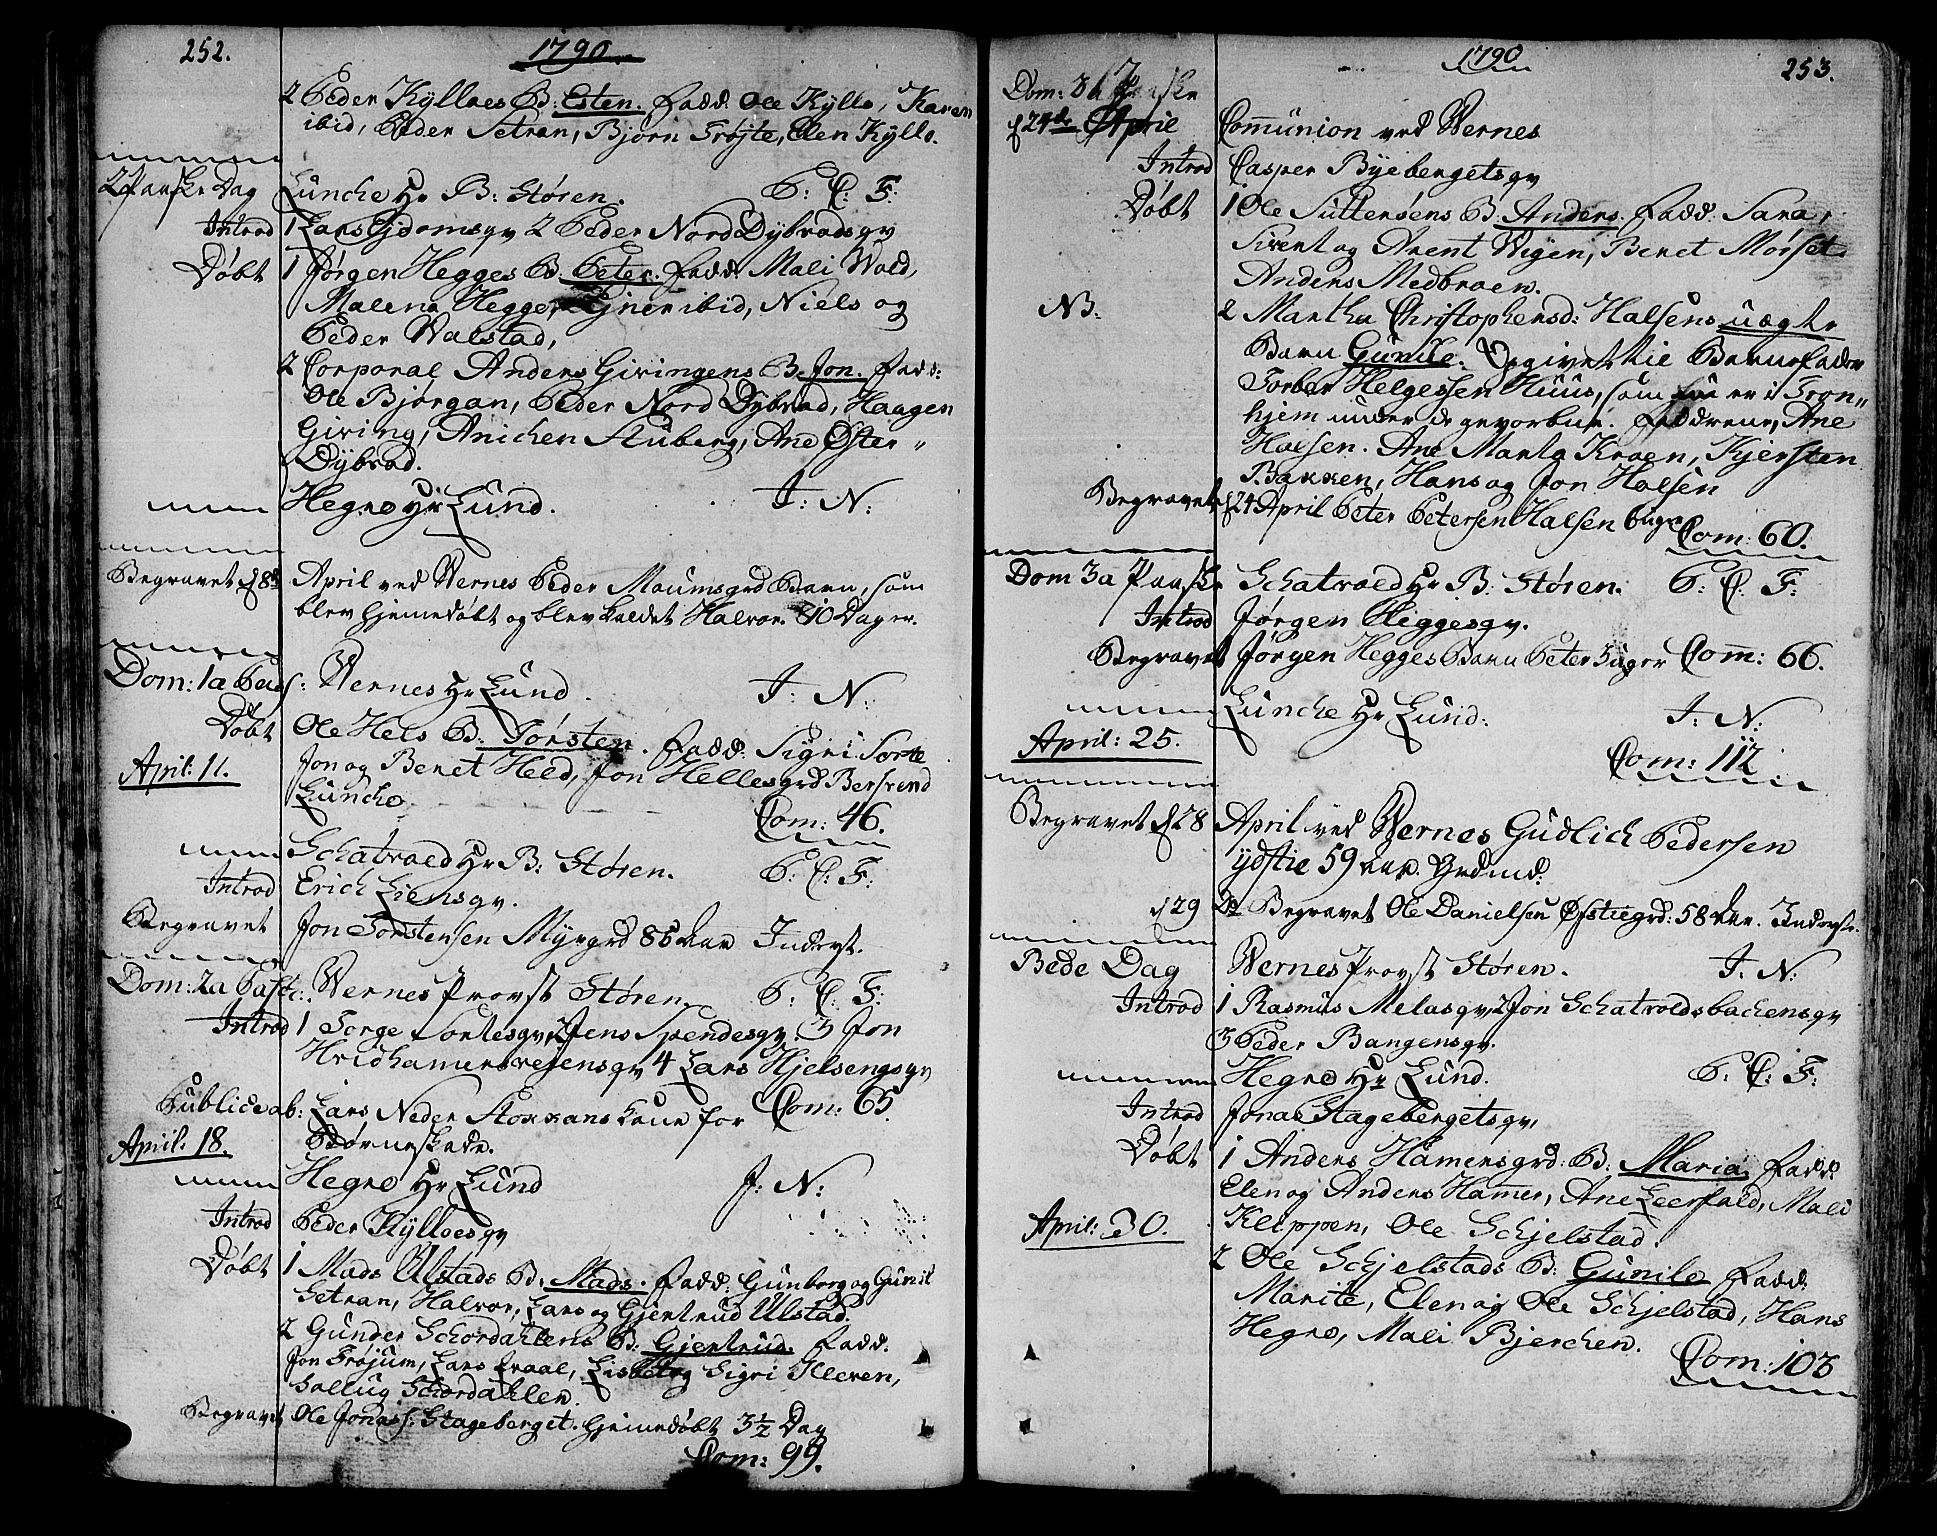 252.
1790
2 Peder Kylloes B: Esten. Fadd. Ole Kyllo, Karen
ibid, Peder Setran, Bjørn Trøjte, Elen Kyllo.
2 Paaske Dag Lunche Hr B: Støren. P: C: F:
Introd 1 Lars Ejdomsqv 2 Peder Nord Dybvadsqv
Døbt 1 Jørgen Hegges B. Peter. Fadd. Mali Wold,
Malena Hegge, ibid, Niels og
Peder Walstad,
2 Corporal Anders Givingens B. Jon. Fadd:
Ole Bjørgan, Peder Nord Dybvad, Haagen
Giving, Anichen Stuberg, Ane Øster-
Dybvad.
Hegre Hr Lund. T: N:
Begravet d 8de April ved Wernes Peder Moumsgrd Barn, som
blev hjemedøbt og blev kaldet Halvor. 10 Dager.
Dom: 1a Pasc: Wernes Hr Lund. T: N:
Døbt Ole Hels B: Torsten. Fadd: Sigri Sorte
April: 11. Jon og Beret Heed, Jon Hellesgrd Berstend
Lunche
Com: 46.
Schatvold Hr B: Støren. P: C: F:
Introd Erich Liensqv.
Begravet Jon Torstensen Myrgrd 85 Aar Inderst.
Dom: 2a Pasc: Wernes Provst Støren. P: C: F:
Introd 1 Torge Sortesqv, 2 Jens Spendesqv. 3 Jon
Hvidhamersvejensqv 4 Lars Hjelsengsqv
Public: ab: Lars Neder Stokkans Kone for Com: 65.
April: 18. Børneskade.
Hegre Hr Lund T: N:
Introd Peder Kylloesqv
Døbt 1 Mads Ulstads B. Mads. Fadd: Gunborg og Gunil
Setran, Halvor, Lars og Gjertrud Ulstad.
2 Gunder Schordahlens B: Gjertrud. Fadd.
Jon Trøjum, Lars Fraal, Lisbet og Sigri Kleven,
Sallug Schordahlen.
Begravet Ole Jonass: Stageberget. hjemedøbt 3½ Dag
Com: 99.
1790
253.
Dom: 3a Paaske
d 24de April Communion ved Wernes
Introd Casper Byebergetsqv
Døbt 1 Ole Sutterøens B. Anders. Fadd. Sara,
Sivert og Arent Wigen, Beret Mørset
Anders Medbroen.
NB: 2 Martha Christophersd: Halsens uægte
Barn Gunile. Opgivet til Barnefader
Torber Helgessen Huus, som er i Tron-
hjem under de gevorbne. Fadderene, Ane
Halsen. Ane Marta Kroen, Kjersten
Bakken, Hans og Jon Halsen
Begravet d 24 April Peter Petersen Halsen 6 uger
Com: 60.
Dom 3a Paaske Schatvold Hr B: Støren. P: C: F:
Introd Jørgen Heggesqv.
Begravet Jørgen Hegges Barn Peter 3 uger Com: 66.
Lunche Hr Lund: T: N:
April: 25.
Com: 112
Begravet d 28 April ved Wernes Gudlich Pedersen
ydstie 59 Aar. Grdmd.
d 29 Do Begravet Ole Danielsen Øfstiegrd: 58 Aar. Inderste.
Bede Dag Wernes Provst Støren. T: N:
Introd 1 Rasmus Melasqv, 2 Jon Schatvoldsbachensqv
3 Peder Bangensqv.
Hegre Hr Lund. P: C: F:
Introd Jonas Stagebergetsqv,
Døbt 1 Anders Hamersgrd: B: Maria. Fadd.
Elen og Anders Hamer, Ane Leerfald, Mali
April: 30. Kleppen, Ole Schjelstad.
2 Ole Schjelstads B: Gunile Fadd.
Marite, Elen og Ole Schjelstad, Hans
Hegre, Mali Bjerchen.
Com: 103